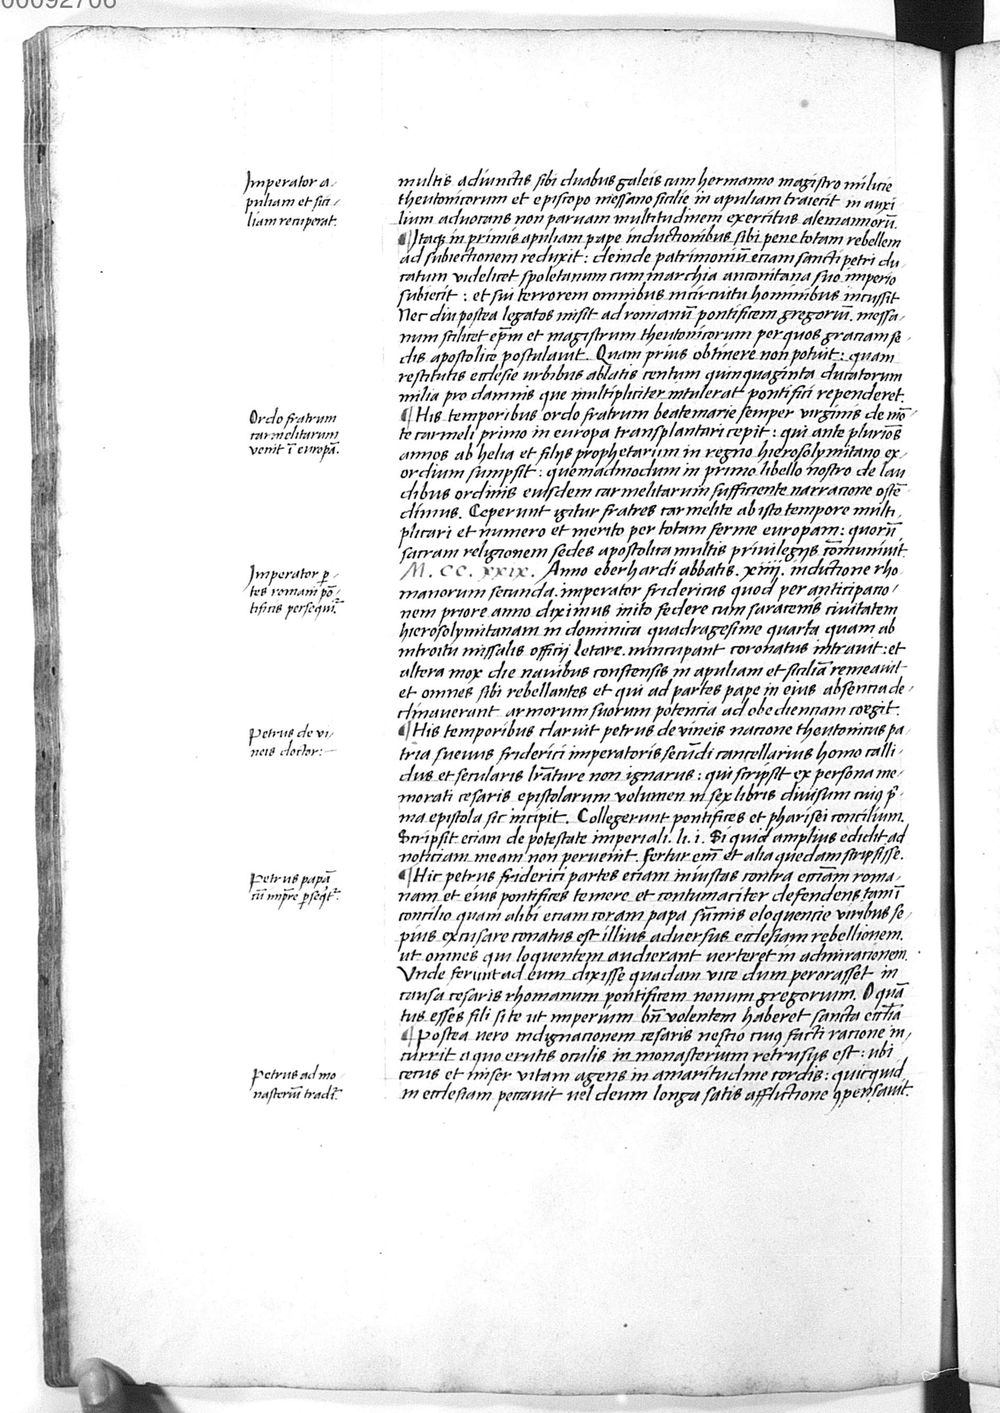 00092706
Imperator a/
puliam et sici/
liam recuperat.
multis adiunctis sibi duabus galeis cum hermanno magistro milicie
theutonicorum et episcopo messano sicilie in apuliam traiecit in auxi/
lium aduocans non paruam multitudinem exercitus alemannorū.
¶Itaqȝ in primis apuliam pape inductionibus sibi pene totam rebellem
ad subiectionem reduxit: deinde patrimoniū eciam sancti petri du/
catum videlicet spoletanum cum marchia anconitana suo imperio
subiecit: et sui terrorem omnibus in circuitu hominibus incussit
Nec diu postea legatos misit ad romanū pontificem gregoriū. messa/
num scilicet ep̄m et magistrum theutonicorum per quos graciam se/
dis apostolice postulauit. Quam prius obtinere non potuit: quam
restitutis ecclesie vrbibus ablatis centum quinquaginta ducatorum
milia pro damnis que multipliciter intulerat pontifici rependeret.
Ordo fratrum
carmelitarum
venit ī europā.
¶His temporibus ordo fratrum beate marie semper virginis de mō/
te carmeli primo in europa transplantari cepit: qui ante pluriōs
annos ab helia et filijs prophetarum in regno hierosolymitano ex/
ordium sumpsit: quemadmodum in primo libello nostro de lau
dibus ordinis eiusdem carmelitarum sufficiente narracione ostē
dimus. Ceperunt igitur fratres carmelite ab isto tempore multi/
plicari et numero et merito per totam ferme europam: quorū
sacram religionem sedes apostolica multis priuilegijs cōmuniuit.
Imperator p̱/
tes romani pō/
tificis persequiť
M.CC.XXIX. Anno eberhardi abbatis. xiiij. indictione rho/
manorum secunda. imperator fridericus quod per anticipacio/
nem priore anno diximus inito federe cum saracenis ciuitatem
hierosolymitanam in dominica quadragesime quarta quam ab
introitu missalis officij letare. nuncupant coronatus intrauit: et
altera mox die nauibus conscensis in apuliam et siciliā remeauit
et omnes sibi rebellantes et qui ad partes pape in eius absencia de/
clinauerant armorum suorum potencia ad obedienciam coegit.
Petrus de vi/
neis doctor:
¶His temporibus claruit petrus de vineis nacione theutonicus pa/
tria sueuus friderici imperatoris secūdi cancellarius homo calli/
dus et secularis lr̄ature non ignarus: qui scripsit ex persona me/
morati cesaris epistolarum volumen in sex libris diuisum cuiꝰ p̄/
ma epistola sic incipit. Collegerunt pontifices et pharisei concilium.
Scripsit eciam de potestate imperiali. li. i. Si quid amplius edidit ad
noticiam meam non peruenit. fertur em̄ et alia quedam scripsisse.
Petrus papā
cū imp̄re p̱seqť.
¶Hic petrus friderici partes eciam iniustas contra ecc̄iam roma/
nam et eius pontifices temere et contumaciter defendens tam ī
concilio quam alibi eciam coram papa sūmis eloquencie viribus se/
pius excusare conatus est illius aduersus ecclesiam rebellionem.
ut omnes qui loquentem audierant verteret in admiracionem.
Vnde ferunt ad eum dixisse quadam vice dum perorasset in
causa cesaris rhomanum pontificem nonum gregorium. O quā
tus esses fili si te ut imperium bn̄ volentem haberet sancta ecc̄ia
¶Postea vero indignacionem cesaris nescio cuiꝰ facti racione in/
currit a quo erutis oculis in monasterium retrusus est: ubi
Petrus ad mo/
nasteriū tradiť.
cecus et miser vitam agens in amaritudine cordis: quicquid
in ecclesiam peccauit vel deum longa satis afflictione ꝯpensauit.